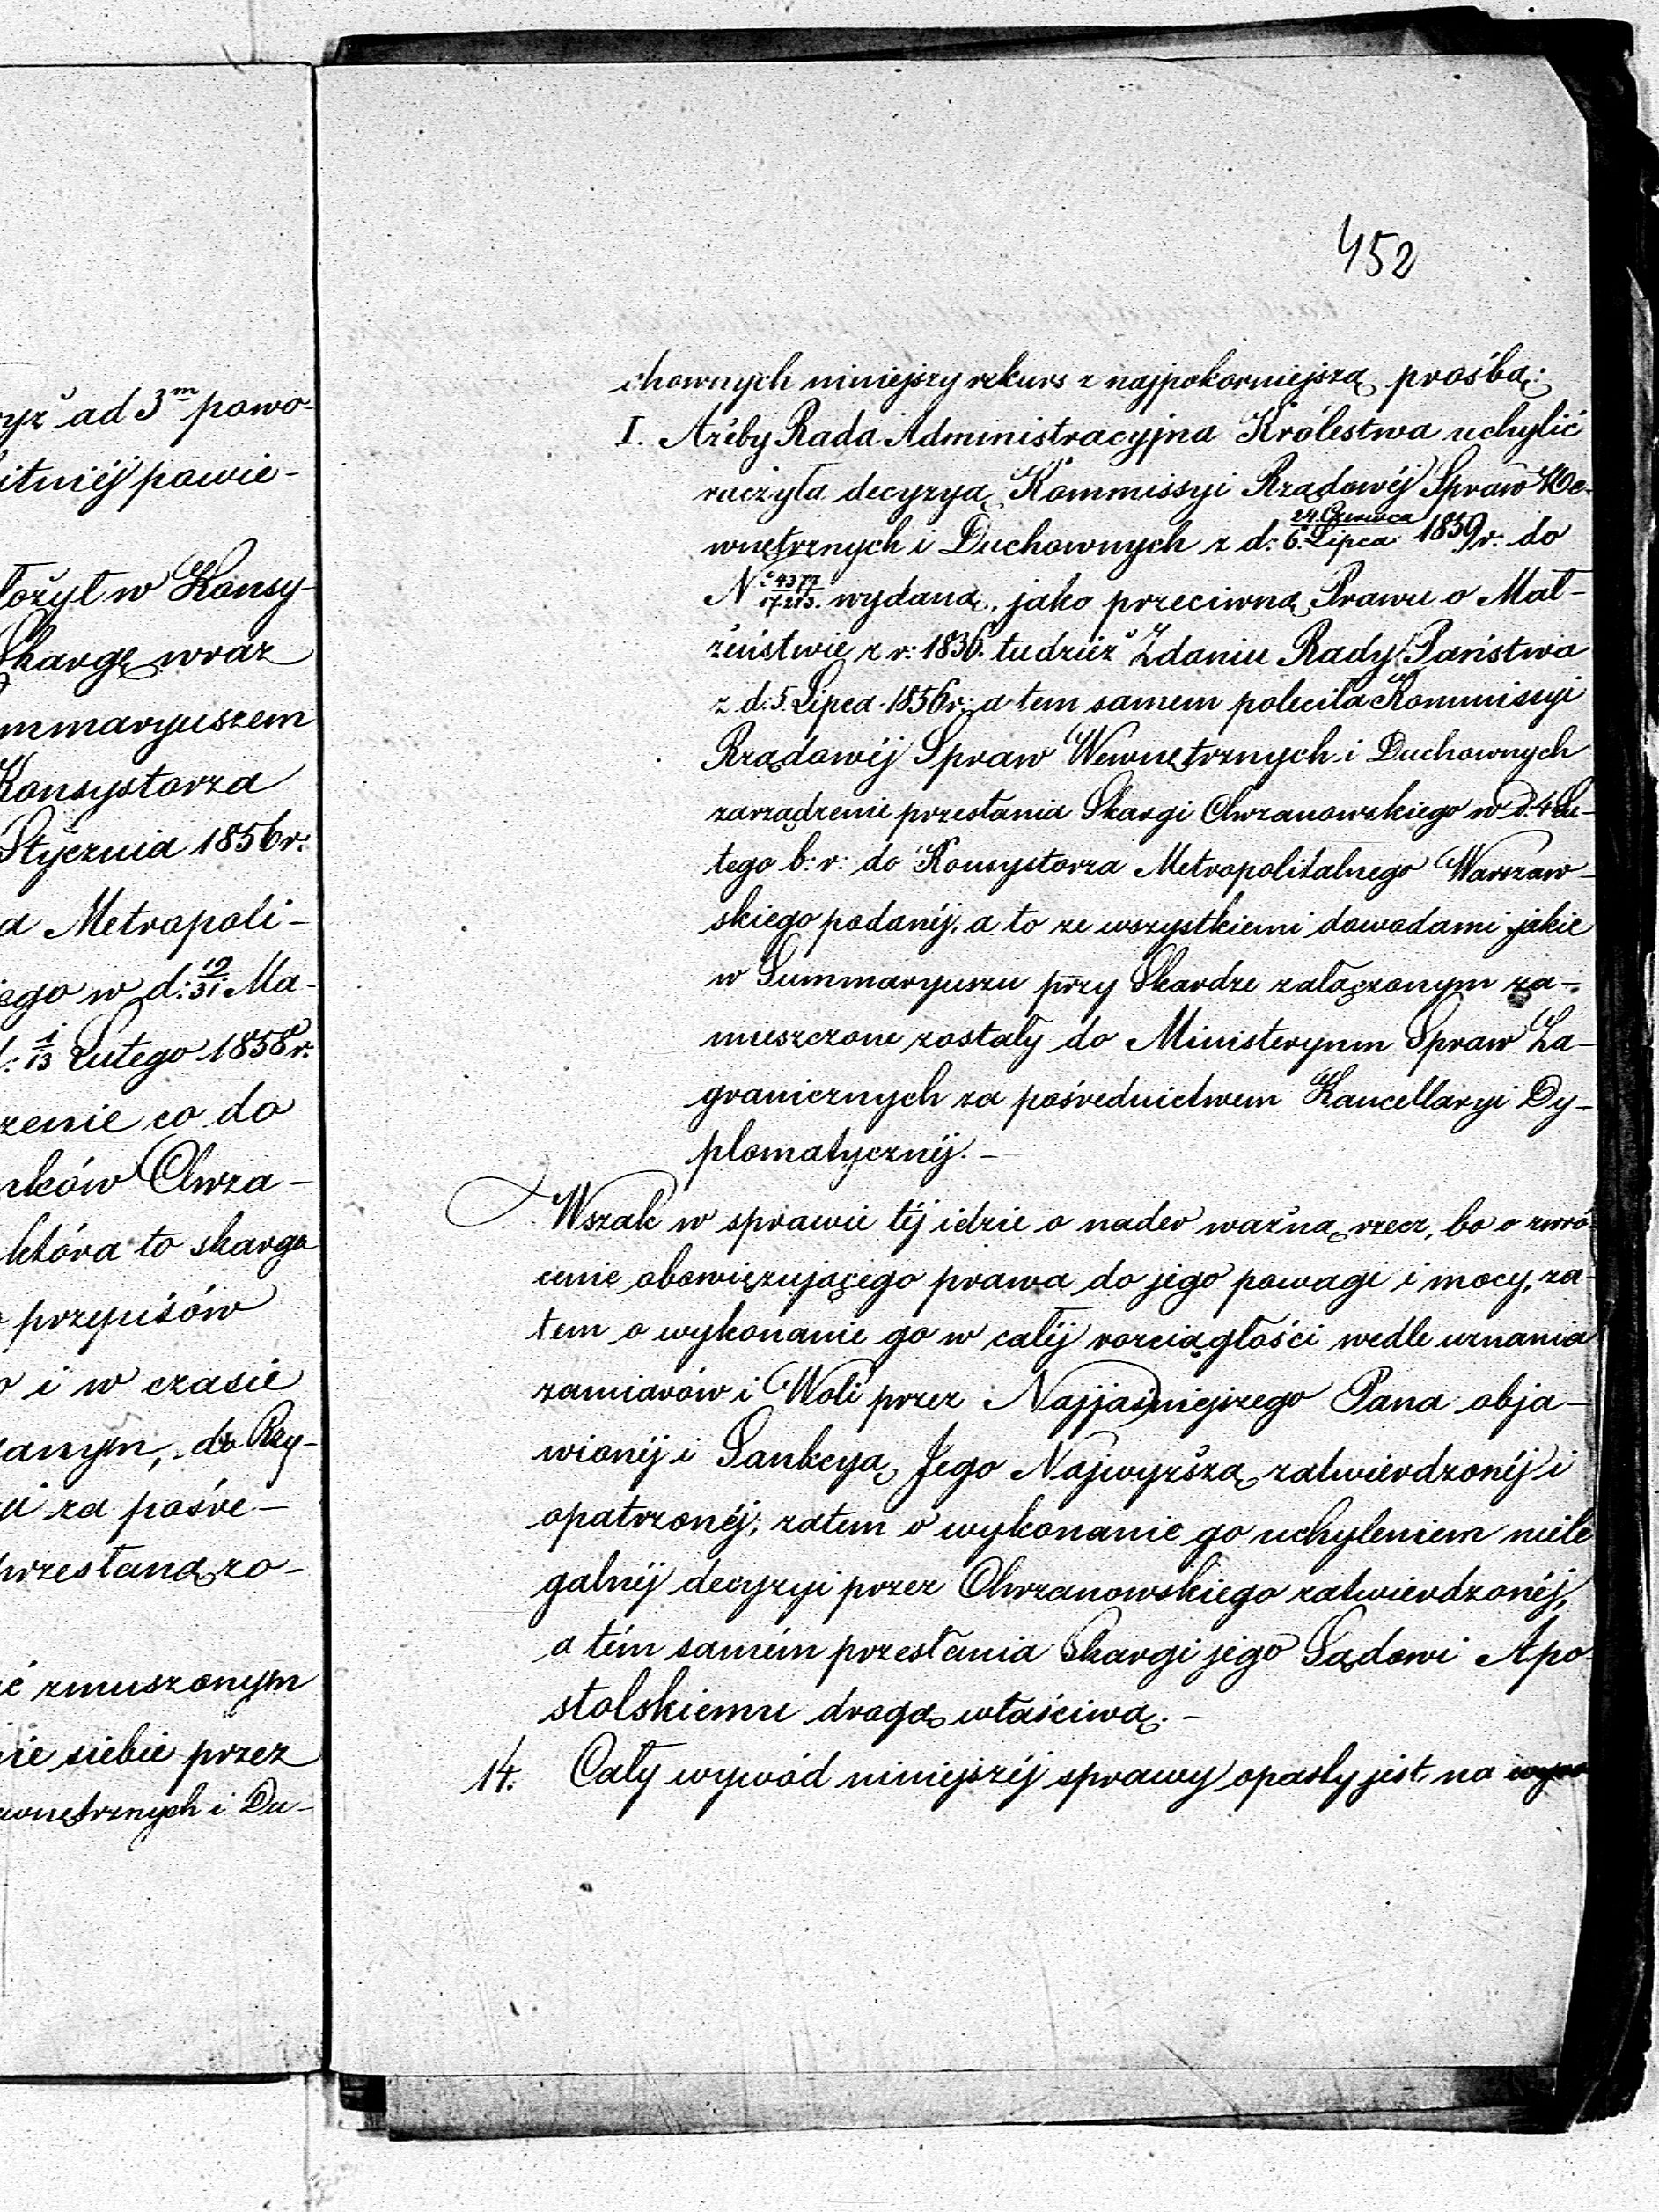 yż ad 3m powo-
itnéj powie-
łożył w Konsy-
Skargę wraz
mmaryuszem
Konsystorza
Stycznia 1856 r:
a Metropoli-
iego w d: 19/31 Ma-
d: 1/13 Lutego 1858 r:
zenie co do
nków Chrza-
która to skarga
przepisów
o i w czasie
anym, do Rzy-
za pośre-
przesłaną zo-
ć zmuszonym
nie siebie przez
wnętrznych i Du-
452
chownych niniejszy rekurs z najpokorniejszą prośbą:
I. Ażeby Rada Administracyjna Królestwa uchylić
raczyła decyzyą Kommissyi Rządowéj Spraw We-
wnętrznych i Duchownych z d: 24. Czerwca/6. Lipca 1859 r: do
No 4377/17213. wydaną, jako przeciwną Prawu o Mał-
żeństwie z r: 1836. tudzież Zdaniu Rady Państwa
z d: 5. Lipca 1856 r: a tem samem poleciła Kommissyi
Rządowéj Spraw Wewnętrznych i Duchownych
zarządzenie przesłania Skargi Chrzanowskiego w d: 4 Lu-
tego b: r: do Konsystorza Metropolitalnego Warszaw-
skiego podanéj, a to ze wszystkiemi dowodami jakie
w Summaryuszu przy Skardze załączonym za-
mieszczone zostały do Ministeryum Spraw Za-
granicznych za pośrednictwem Kancellaryi Dy-
plomatycznéj. -
Wszak w sprawie téj idzie o nader ważną rzecz, bo o zwró
cenie obowięzującego prawa do jego powagi i mocy, za-
tem o wykonanie go w całéj rozciągłości wedle uznania
zamiarów i Woli przez Najjaśniejszego Pana obja-
wionéj i Sankcyą Jego Najwyższą zatwierdzonéj i
opatrzonéj; zatem o wykonanie go uchyleniem niele
galnéj decyzyi przez Chrzanowskiego zatwierdzonéj,
a tém samém przesłania Skargi jego Sądowi Apo-
stolskiemu drogą właściwą. -
14. Cały wywód niniejszéj sprawy oparty jest na